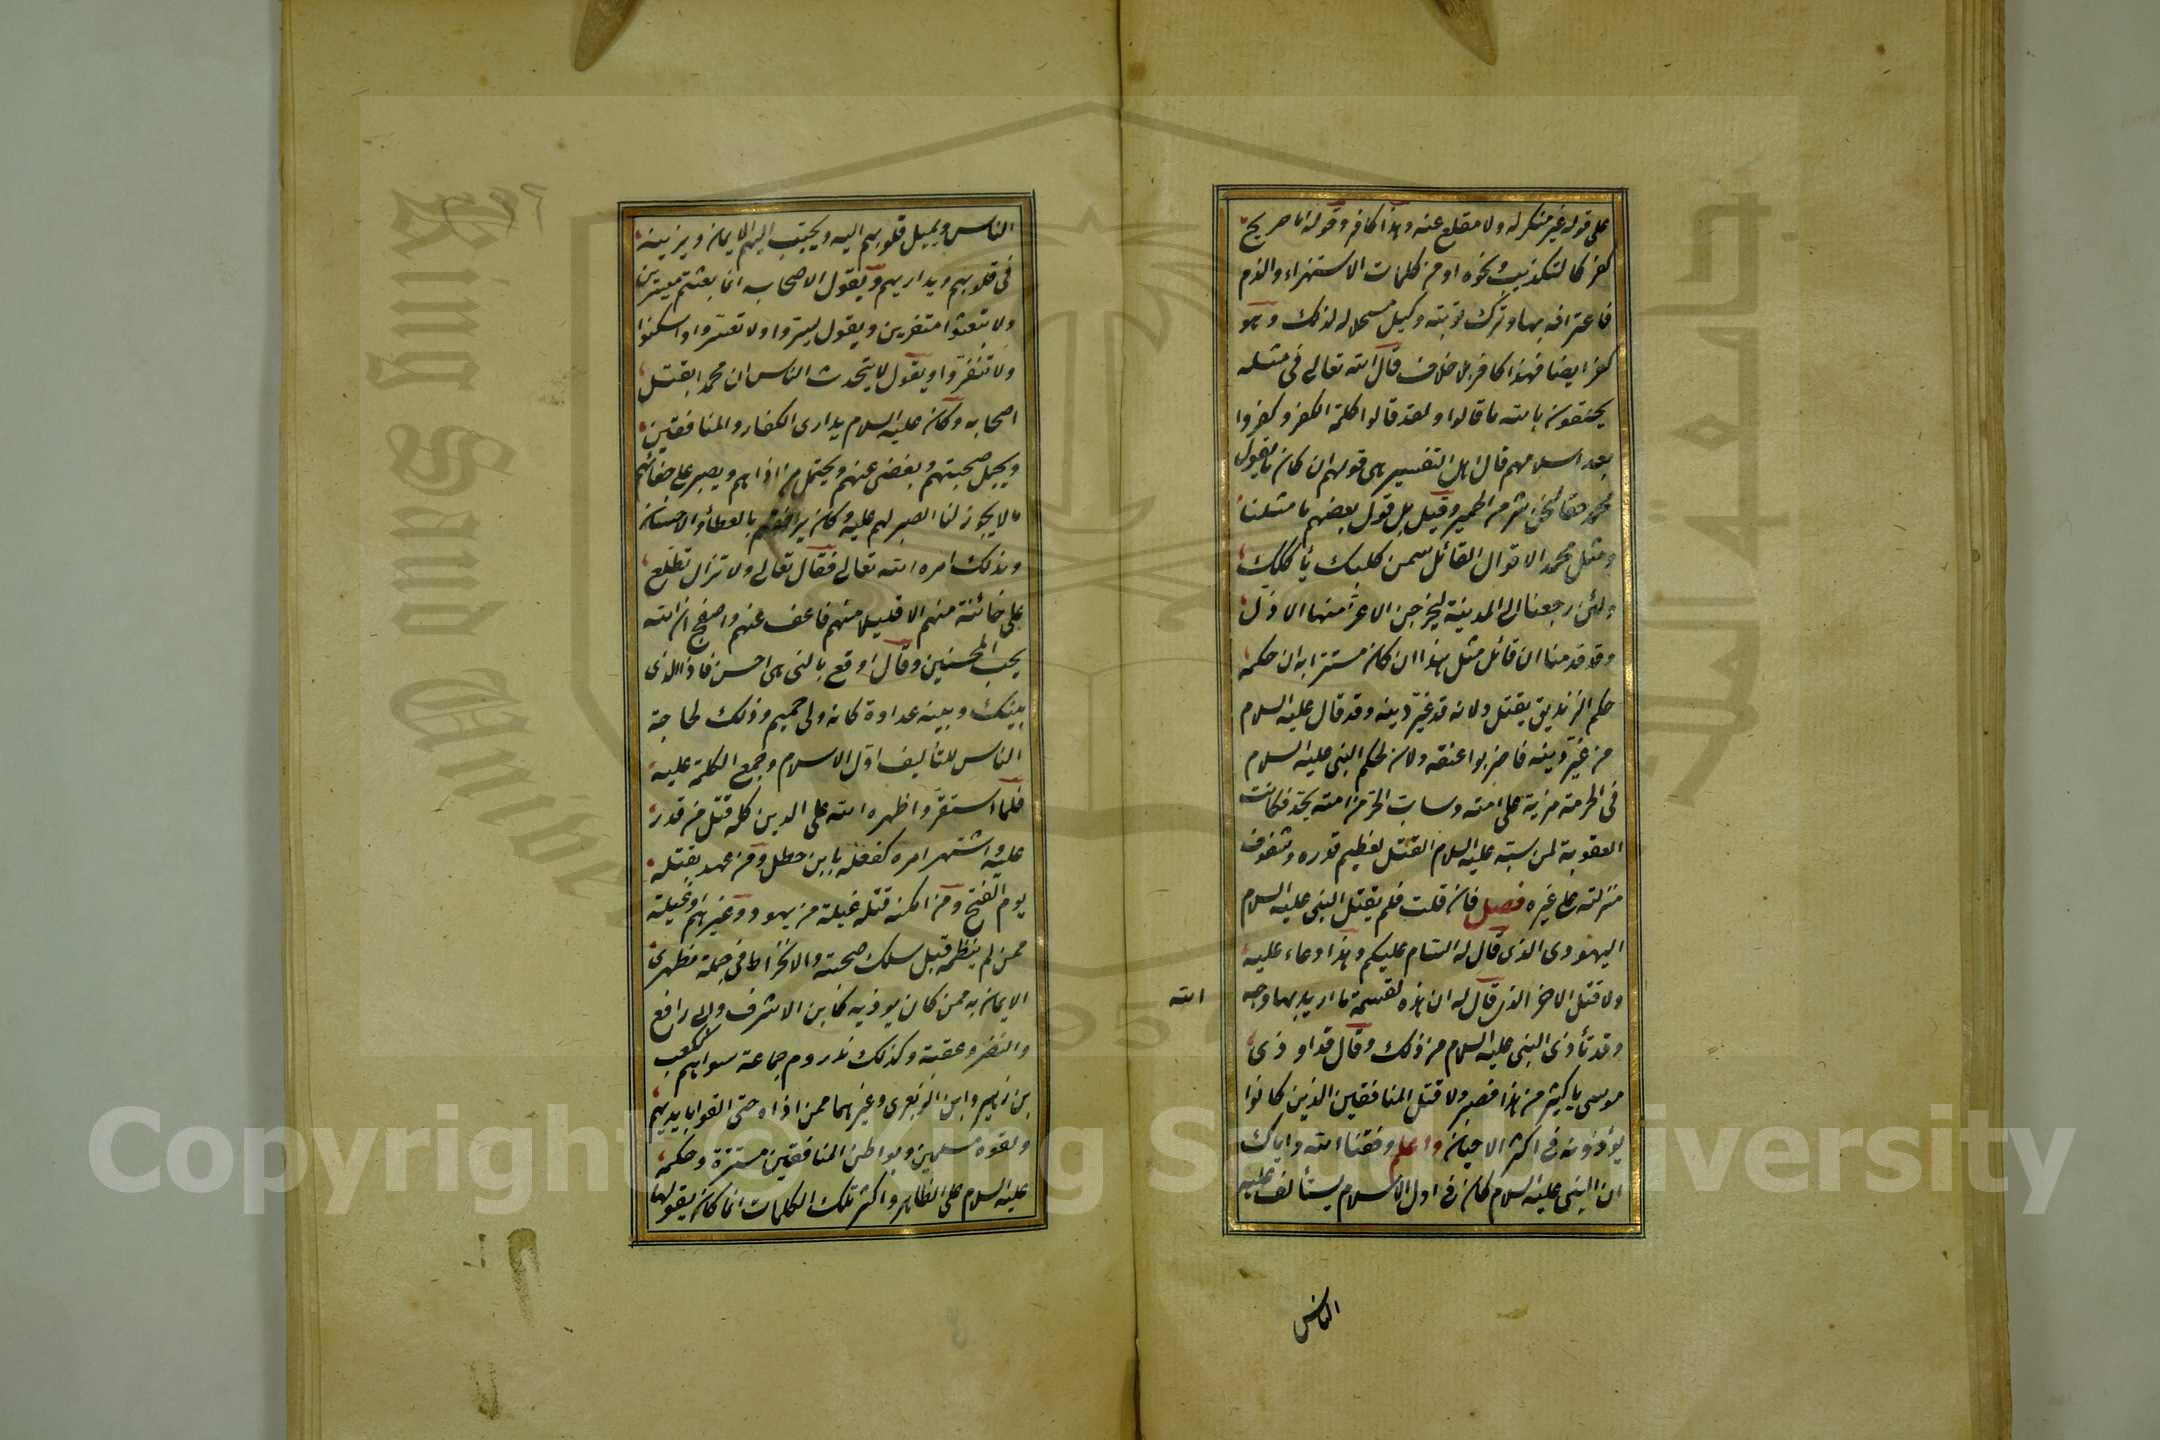 على قوله غير منكر له ولا مقلع عنه وهذا كافر وقوله اما صريح
كفر كالتكذيب ونحوه او من كلمات الاستهزاء والذم
فاعترافه بها وترك توبته دليل استحلاله لذلك وهو
كفر ايضا فهذا كافر بلا خلاف قال الله تعالى في مثله
يحلفون بالله ما قالوا ولقد قالوا كلمة الكفر وكفروا
بعد اسلامهم قال اهل التفسير هي قولهم ان كان ما يقول
محمد حقا لنحن شر من الحمير وقيل بل قول بعضهم ما مثلنا
ومثل محمد الا قول القائل سمن كلبك يأكلك
ولئن رجعنا الى المدينة ليخرجن الاعز منها الاذل
وقد قدمنا ان قائل مثل هذا ان كان مستترا به ان حكمه
حكم الزنديق يقتل ولانه قد غير دينه وقد قال عليه السلام
من غير دينه فاضربوا عنقه ولان لحكم النبي عليه السلام
في الحرمة مزية على امته وساب الحر من امته يحد فكانت
العقوبة لمن سبه عليه السلام القتل لعظيم قدره وشفوف
منزلته على غيره فصل فان قلت فلم يقتل النبي عليه السلام
اليهودى الذى قال له السام عليكم وهذا دعاء عليه
ولا قتل الاخر الذى قال له ان هذه لقسمة ما اريد بها وجه
الله
وقد تأذى النبي عليه السلام من ذلك وقال قد اوذى
موسى باكثر من هذا فصبر ولا قتل المنافقين الذين كانوا
يؤذونه في اكثر الاحيان واعلم وفقنا الله واياك
ان النبي عليه السلام كان في اول الاسلام يستألف عليه
الناس
الناس ويميل قلوبهم اليه ويحبب اليهم الايمان ويزينه
في قلوبهم ويداريهم ويقول لاصحابه انما بعثتم ميسرين
ولا تبعثوا منفرين ويقول يسروا ولا تعسروا واسكنوا
ولا تنفروا ويقول لا يتحدث الناس ان محمدا يقتل
اصحابه وكان عليه السلام يدارى الكفار والمنافقين
ويجمل صحبتهم ويغضى عنهم ويحتمل من اذاهم ويصبر على جفائهم
ما لا يجوز لنا الصبر لهم عليه وكان يرافقهم بالعطاء والاحسان
وبذلك امره الله تعالى فقال تعالى ولا تزال تطلع
على خائنة منهم الا قليلا منهم فاعف عنهم واصفح ان الله
يحب المحسنين وقال ادفع بالتى هى احسن فاذا الذى
بينك وبينه عداوة كانه ولى حميم وذلك لحاجة
الناس للتأليف اول الاسلام وجمع الكلمة عليه
فلما استقر واظهره الله على الدين كله قتل من قدر
عليه واشتهر امره كفعله بابن خطل ومن عهد بقتله
يوم الفتح ومن امكنه قتله غيلة من يهود وغيرهم او غيلة
ممن لم ينظمه قبل سلك صحبته والانخراط في جملة مظهرى
الايمان به ممن كان يوذيه كابن الاشرف وابى رافع
والنضر وعقبة وكذلك نذر دم جماعة سواهم ككعب
بن زهير وابن الزبعرى وغيرهما ممن اذاه حتى القوا بايديهم
ولقوه مسلمين وبواطن المنافقين مستترة وحكمه
عليه السلام على الظاهر واكثر تلك الكلمات انما كان يقولها
Copyright © King Saud University
King Saud University
جامعة الملك
1957